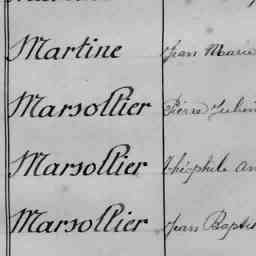 Martine Jean Marie
Marsollier Pierre Julien
Marsollier Théophile
Marsollier Jean Baptis